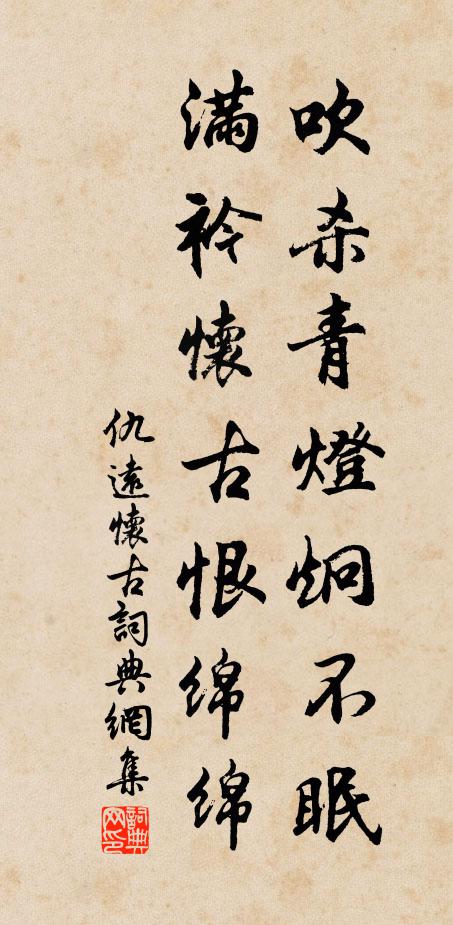 吹杀青燈炯不眠
满衿懷古恨绵绵
仇遠懷古詞典網集
詞典网印